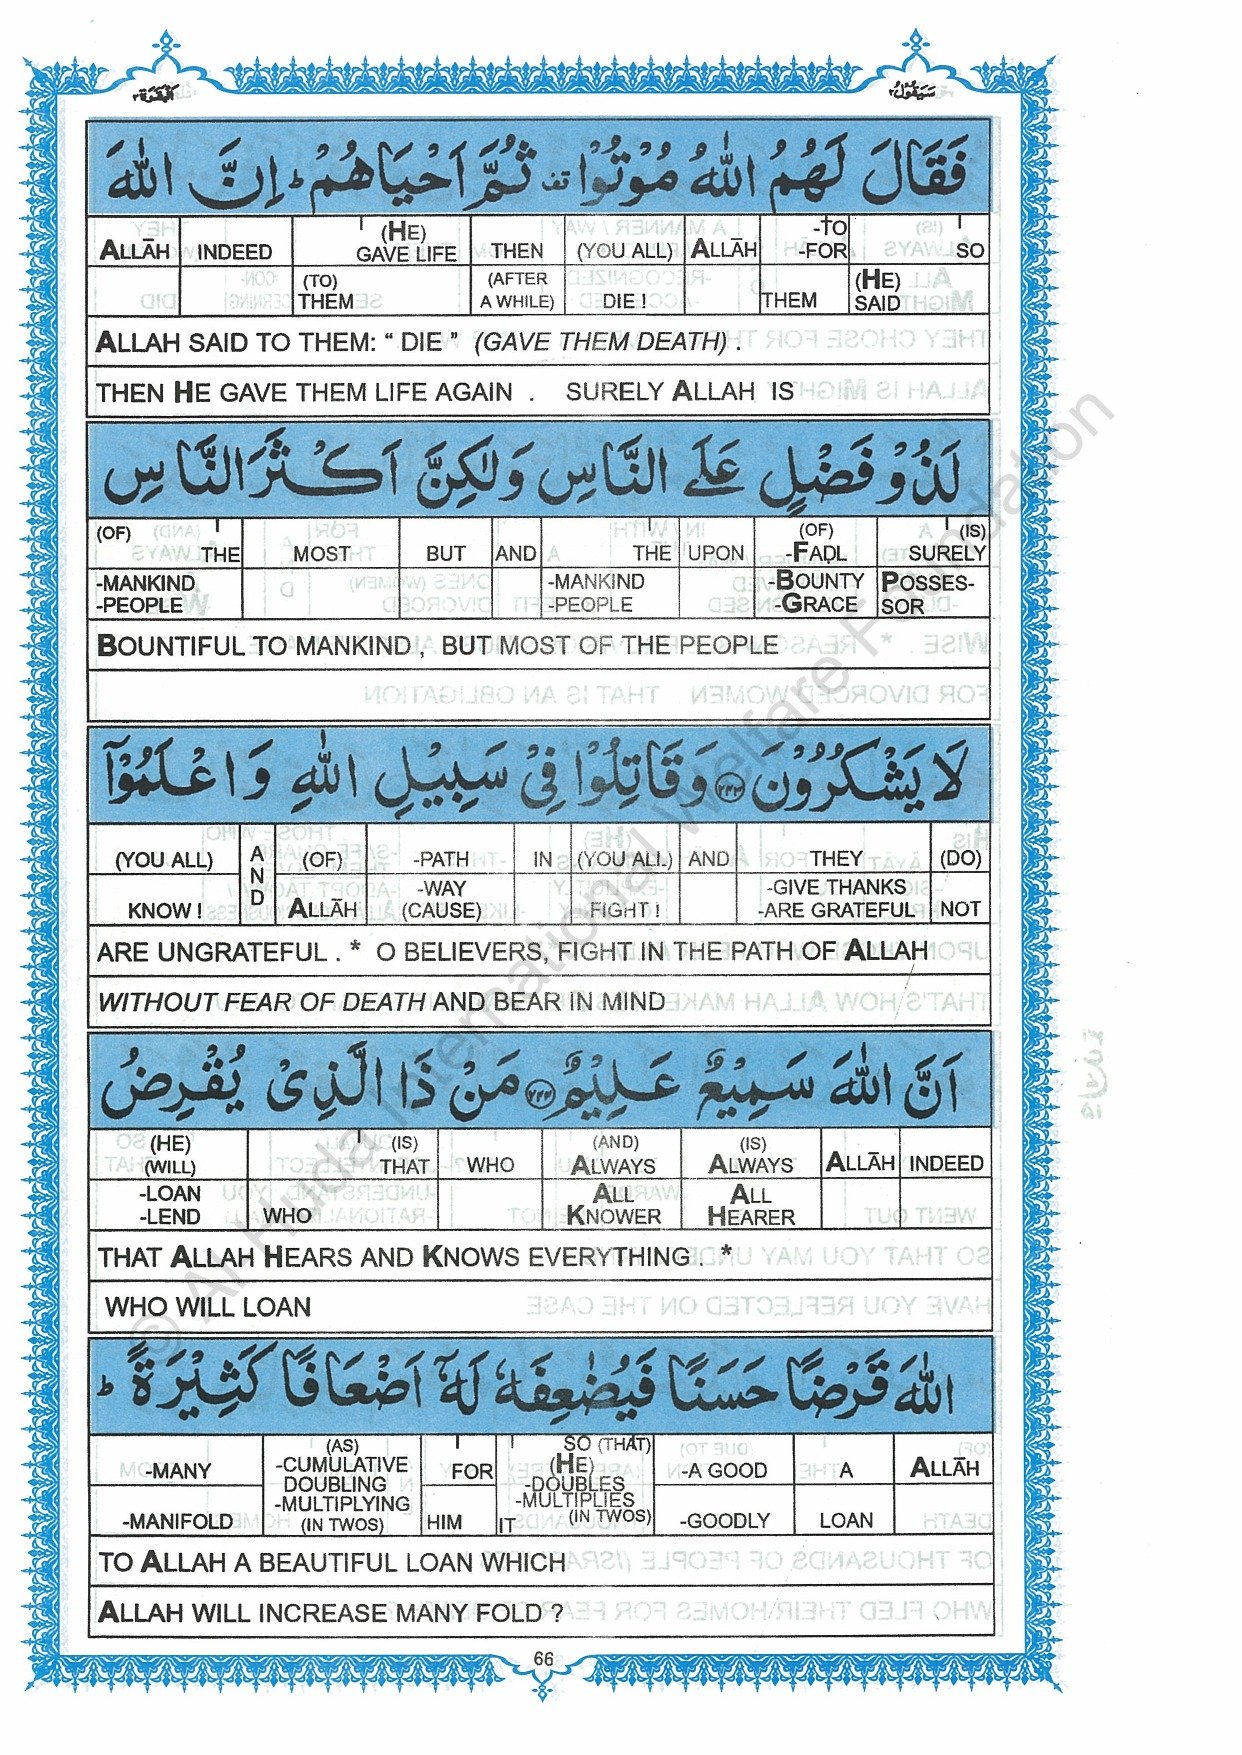 البقرة ٢ سيقول ٢
فَقَالَ لَهُمُ اللّٰهُ مُوْتُوْا ۫ ثُمَّ اَحْيَاهُمْ ؕ اِنَّ اللّٰهَ
ALLĀH INDEED (HE) GAVE LIFE THEN (YOU ALL) ALLĀH -TO -FOR SO
(TO) THEM (AFTER A WHILE) DIE ! THEM (HE) SAID
ALLAH SAID TO THEM: “ DIE ” (GAVE THEM DEATH) .
THEN HE GAVE THEM LIFE AGAIN . SURELY ALLAH IS
لَذُوْ فَضْلٍ عَلَى النَّاسِ وَلٰكِنَّ اَكْثَرَ النَّاسِ
(OF) THE MOST BUT AND THE UPON (OF) -FADL (IS) SURELY
-MANKIND -PEOPLE -MANKIND -PEOPLE -BOUNTY -GRACE POSSES-SOR
BOUNTIFUL TO MANKIND , BUT MOST OF THE PEOPLE
لَا يَشْكُرُوْنَ ﴿۲۴۳﴾ وَقَاتِلُوْا فِيْ سَبِيْلِ اللّٰهِ وَاعْلَمُوْٓا
(YOU ALL) AND (OF) -PATH IN (YOU ALL) AND THEY (DO)
KNOW ! ALLĀH -WAY (CAUSE) FIGHT ! -GIVE THANKS -ARE GRATEFUL NOT
ARE UNGRATEFUL . * O BELIEVERS, FIGHT IN THE PATH OF ALLAH
WITHOUT FEAR OF DEATH AND BEAR IN MIND
اَنَّ اللّٰهَ سَمِيْعٌ عَلِيْمٌ ﴿۲۴۴﴾ مَنْ ذَا الَّذِيْ يُقْرِضُ
(HE) (WILL) (IS) THAT WHO (AND) ALWAYS (IS) ALWAYS ALLĀH INDEED
-LOAN -LEND WHO ALL KNOWER ALL HEARER
THAT ALLAH HEARS AND KNOWS EVERYTHING . *
WHO WILL LOAN
اللّٰهَ قَرْضًا حَسَنًا فَيُضٰعِفَهٗ لَهٗٓ اَضْعَافًا كَثِيْرَةً ؕ
-MANY (AS) -CUMULATIVE DOUBLING FOR SO (THAT) (HE) -DOUBLES -A GOOD A ALLĀH
-MANIFOLD -MULTIPLYING (IN TWOS) HIM IT -MULTIPLIES (IN TWOS) -GOODLY LOAN
TO ALLAH A BEAUTIFUL LOAN WHICH
ALLAH WILL INCREASE MANY FOLD ?
66
© Al Huda International Welfare Foundation